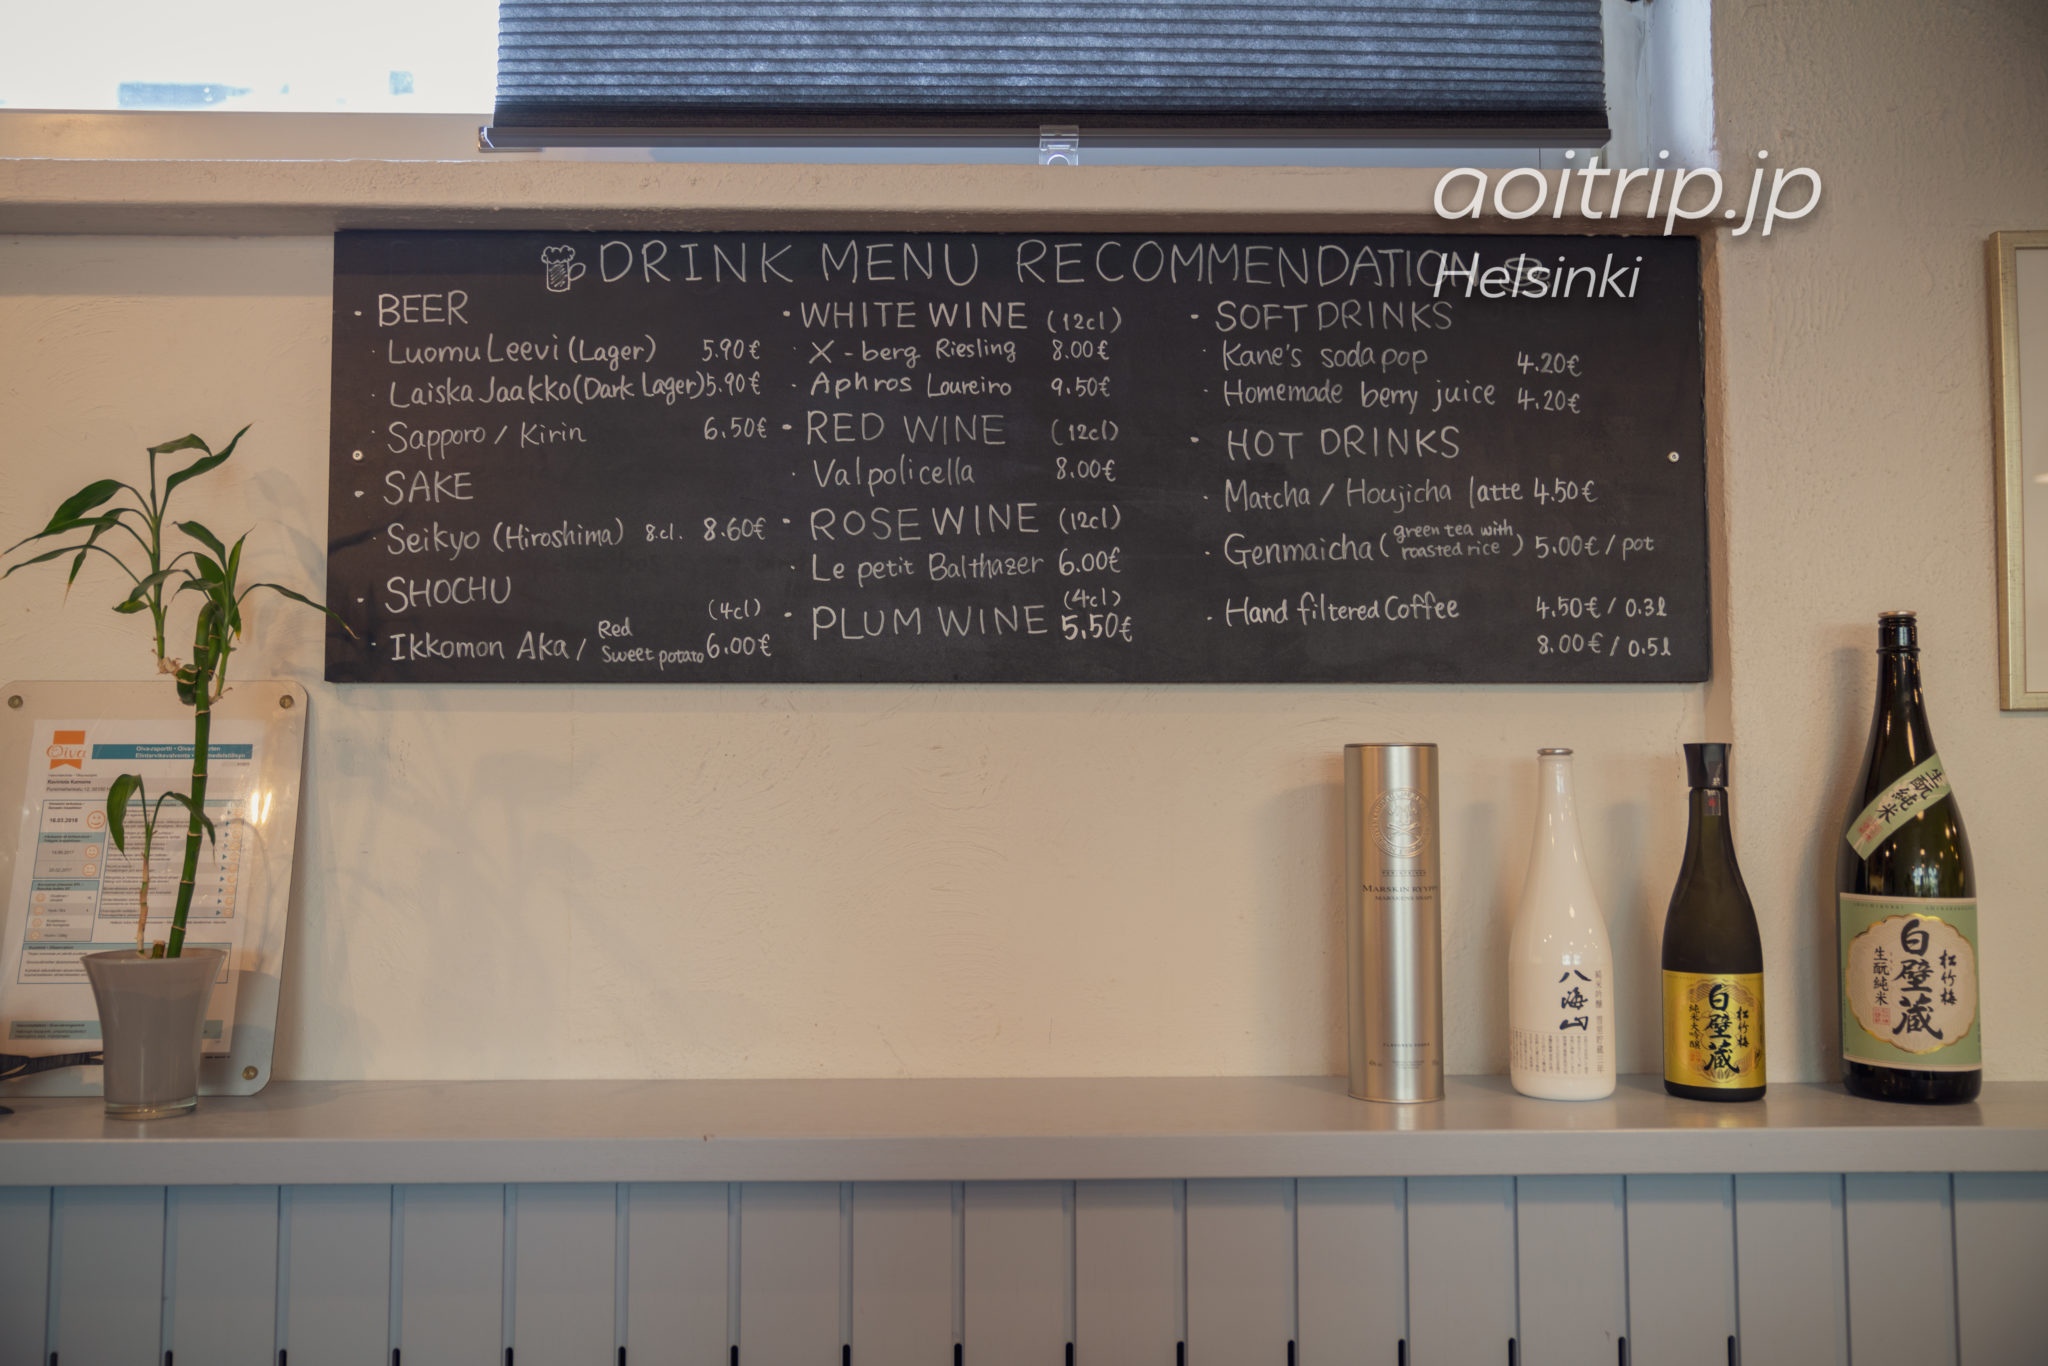 aoitrip.jp
Helsinki
DRINK MENU RECOMMENDATION
• BEER
· Luomu Leevi (Lager) 5.90€
· Laiska Jaakko (Dark Lager) 5.90€
· Sapporo / Kirin 6.50€
• SAKE
· Seikyo (Hiroshima) 8cl. 8.60€
• SHOCHU
(4cl)
· Ikkomon Aka / Red Sweet potato 6.00€
• WHITE WINE (12cl)
· X-berg Riesling 8.00€
· Aphros Loureiro 9.50€
• RED WINE (12cl)
· Valpolicella 8.00€
• ROSE WINE (12cl)
· Le petit Balthazer 6.00€
• PLUM WINE (4cl) 5.50€
• SOFT DRINKS
· Kane's soda pop 4.20€
· Homemade berry juice 4.20€
• HOT DRINKS
· Matcha / Houjicha latte 4.50€
· Genmaicha (green tea with roasted rice) 5.00€ / pot
· Hand filtered Coffee 4.50€ / 0.3l
8.00€ / 0.5l
Oiva
Oiva-raportti • Oiva-
Ravintola Kamome
16.03.2018
MARSKIN RYYPPY
八海山
純米吟醸
松竹梅
白壁蔵
純米大吟醸
生酛純米
松竹梅
白壁蔵
生酛純米